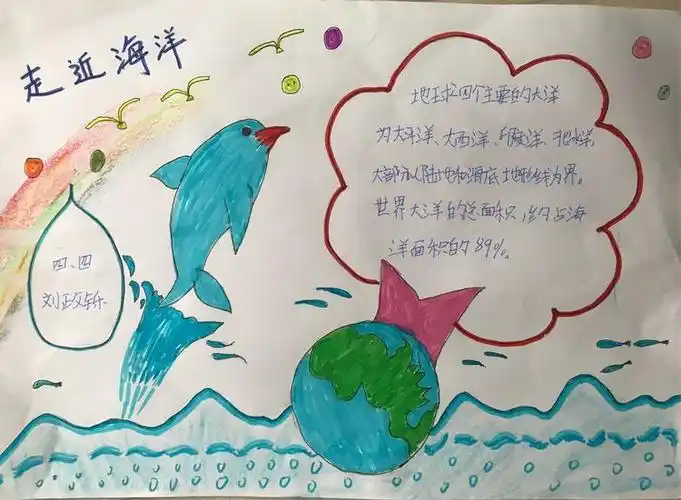 走近海洋
地球四个主要的大洋
为太平洋、大西洋、印度洋、北冰洋,
大部分以陆地和海底地形线为界。
世界大洋的总面积,约占海
洋面积的89%。
四、四
刘政轩